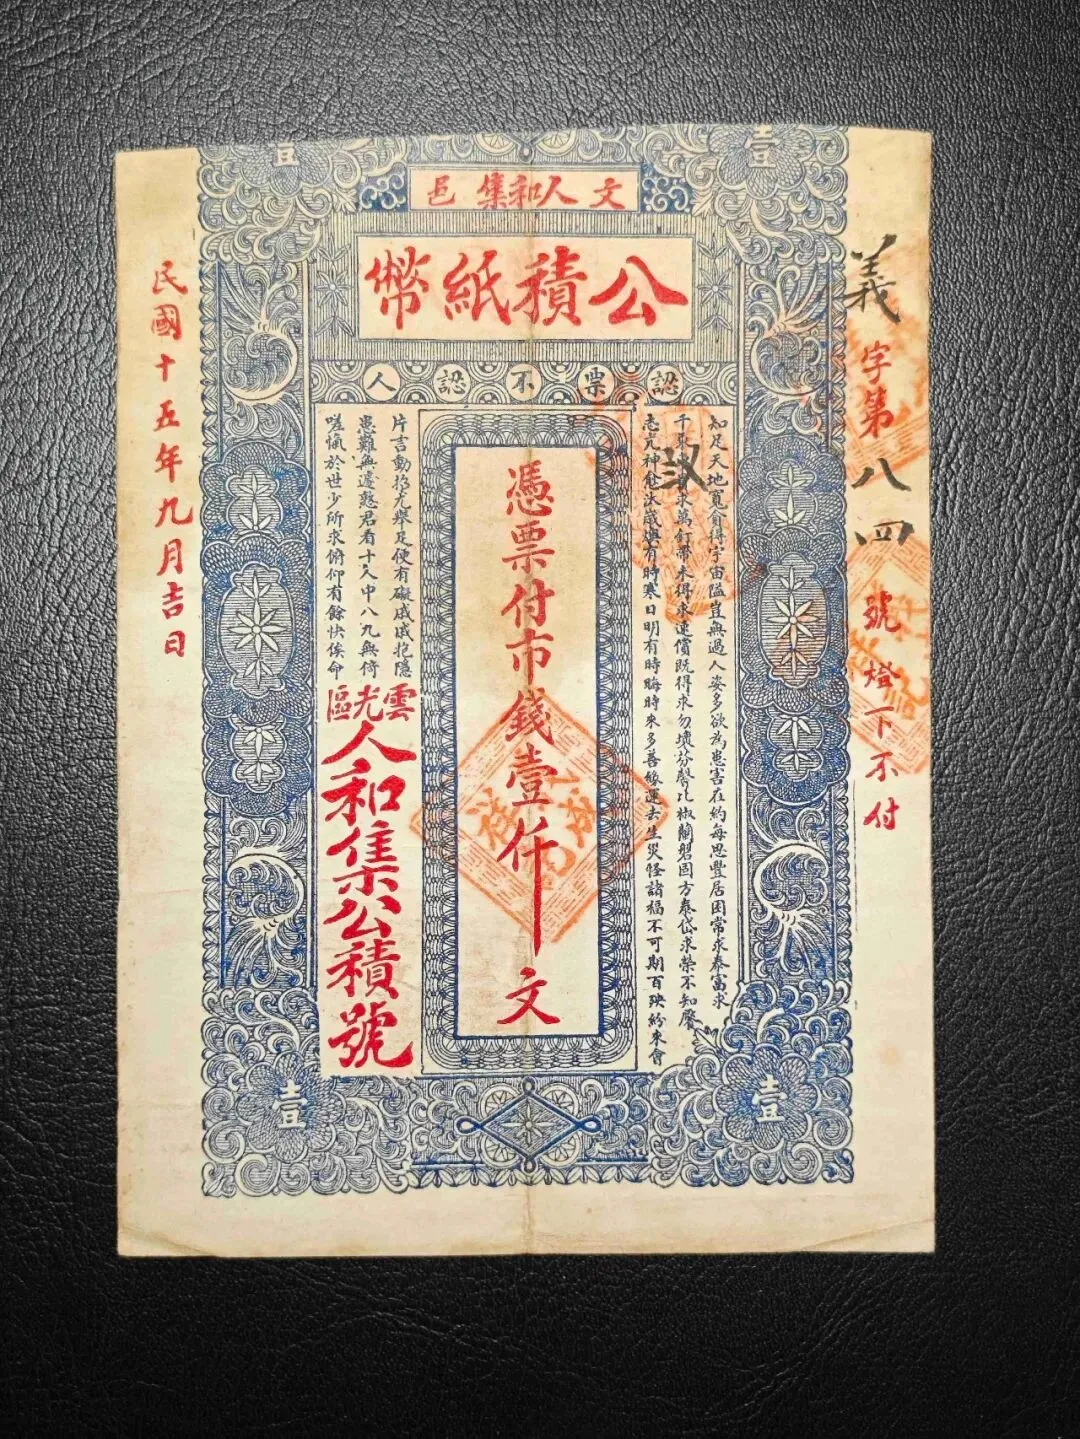 文人和集邑
公積紙幣
認票不認人
義字第八四號燈下不付
知足天地寬貪得宇宙隘豈無過人姿多欲為患害在約每思豐居困常求泰富求
千 求萬釘帶未得求速償既得求勿壞芬馨比椒蘭磐固方泰岱求榮不知饜
志亢神愈汰歲燠有時寒日明有時晦時來多善緣運去生災怪諸福不可期百殃紛來會
憑票付市錢壹仟文
片言動招尤舉足便有礙戚戚抱隱
患難無邊愁君看十人中八九無倚
嗟愾於世少所求俯仰有餘快俟命
雲老區
人和集公積號
民國十五年九月吉日
壹
壹
壹
壹